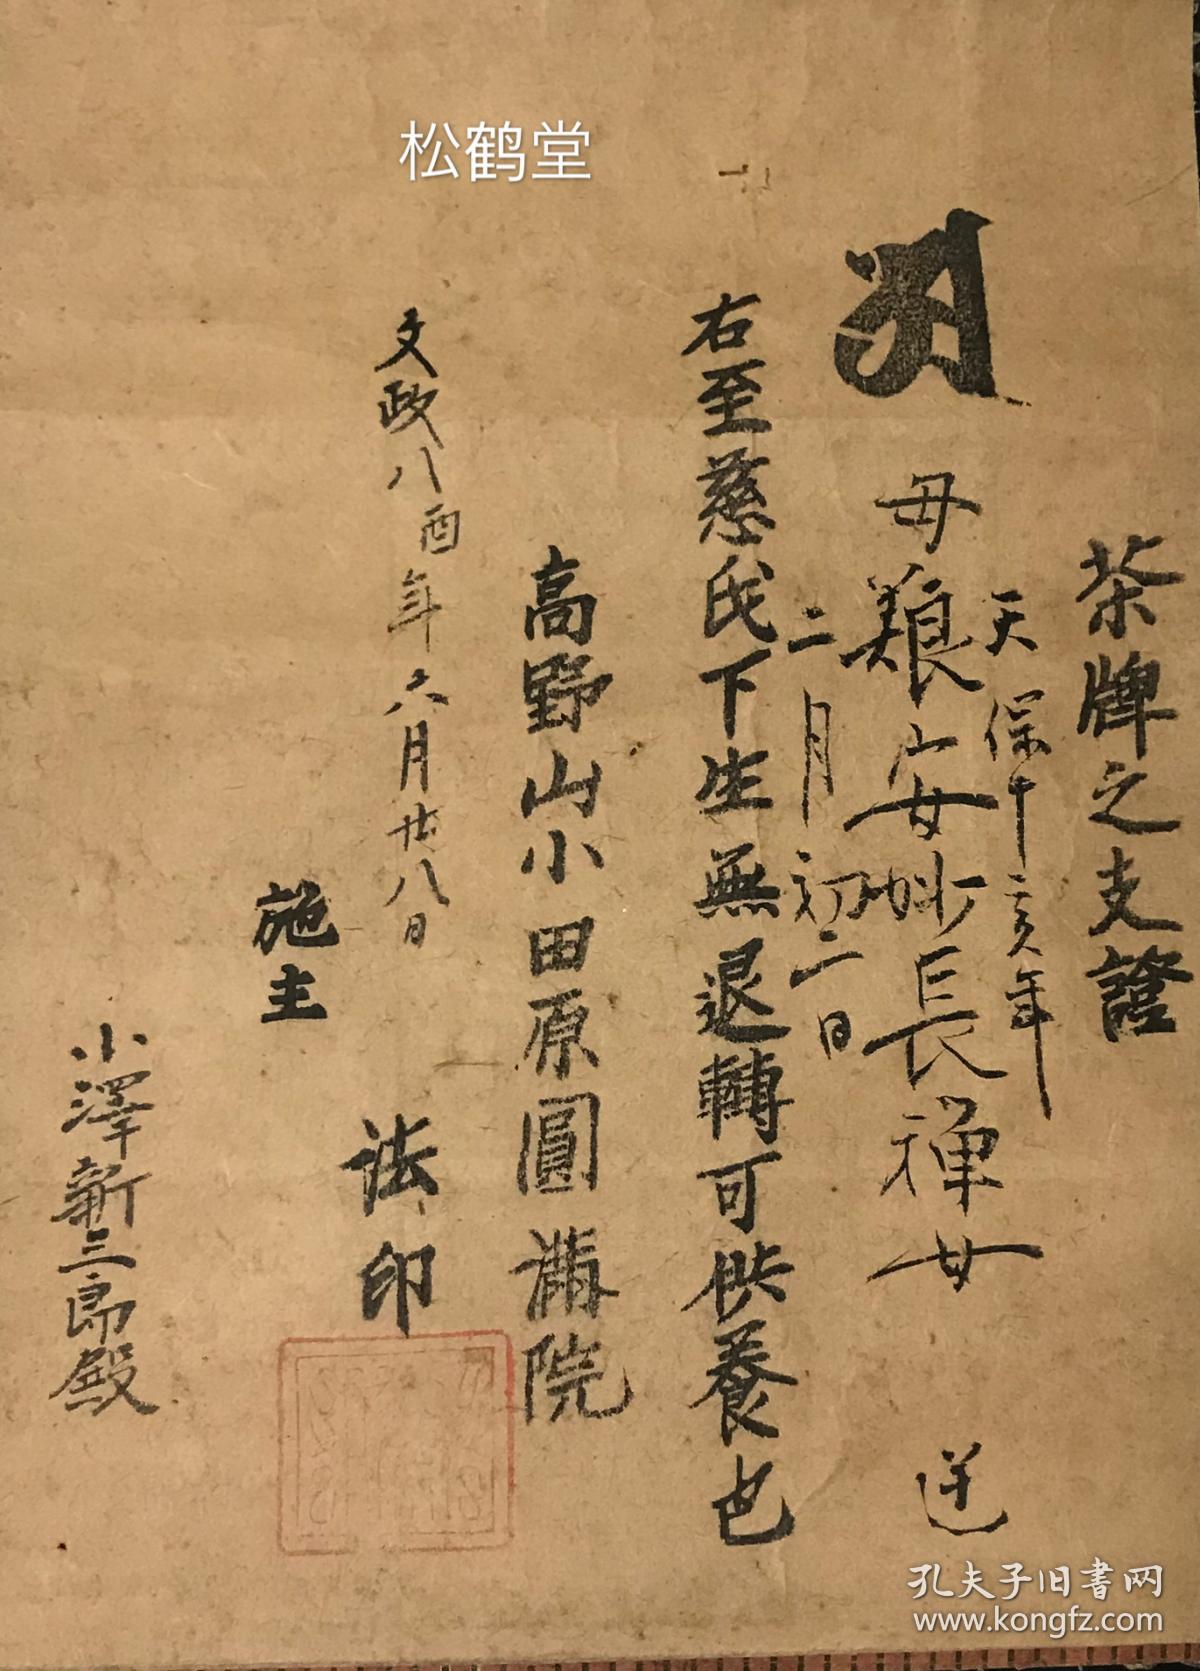 松鹤堂
茶牌之支證
天保十亥年
母艱安妙長禅女 逆
二月初二日
右至慈氏下生無退轉可供養也
高野山小田原圓満院
文政八酉年六月廿八日
法印
施主
小澤新三郎殿
孔夫子旧書网
www.kongfz.com